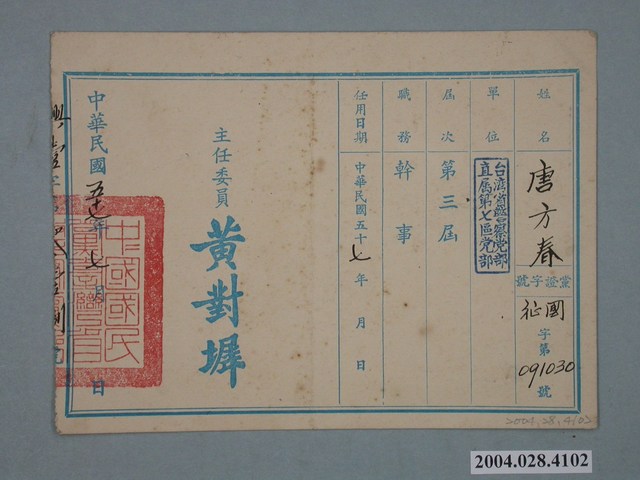 姓名
唐方春
黨證字號
國征字第091030號
單位
台湾省警察党部
直属第七區党部
屆次
第三屆
職務
幹事
任用日期
中華民國五十七年 月 日
主任委員
黃對墀
中華民國五十七年七月 日
中國國民
2004.28.4102
2004.028.4102